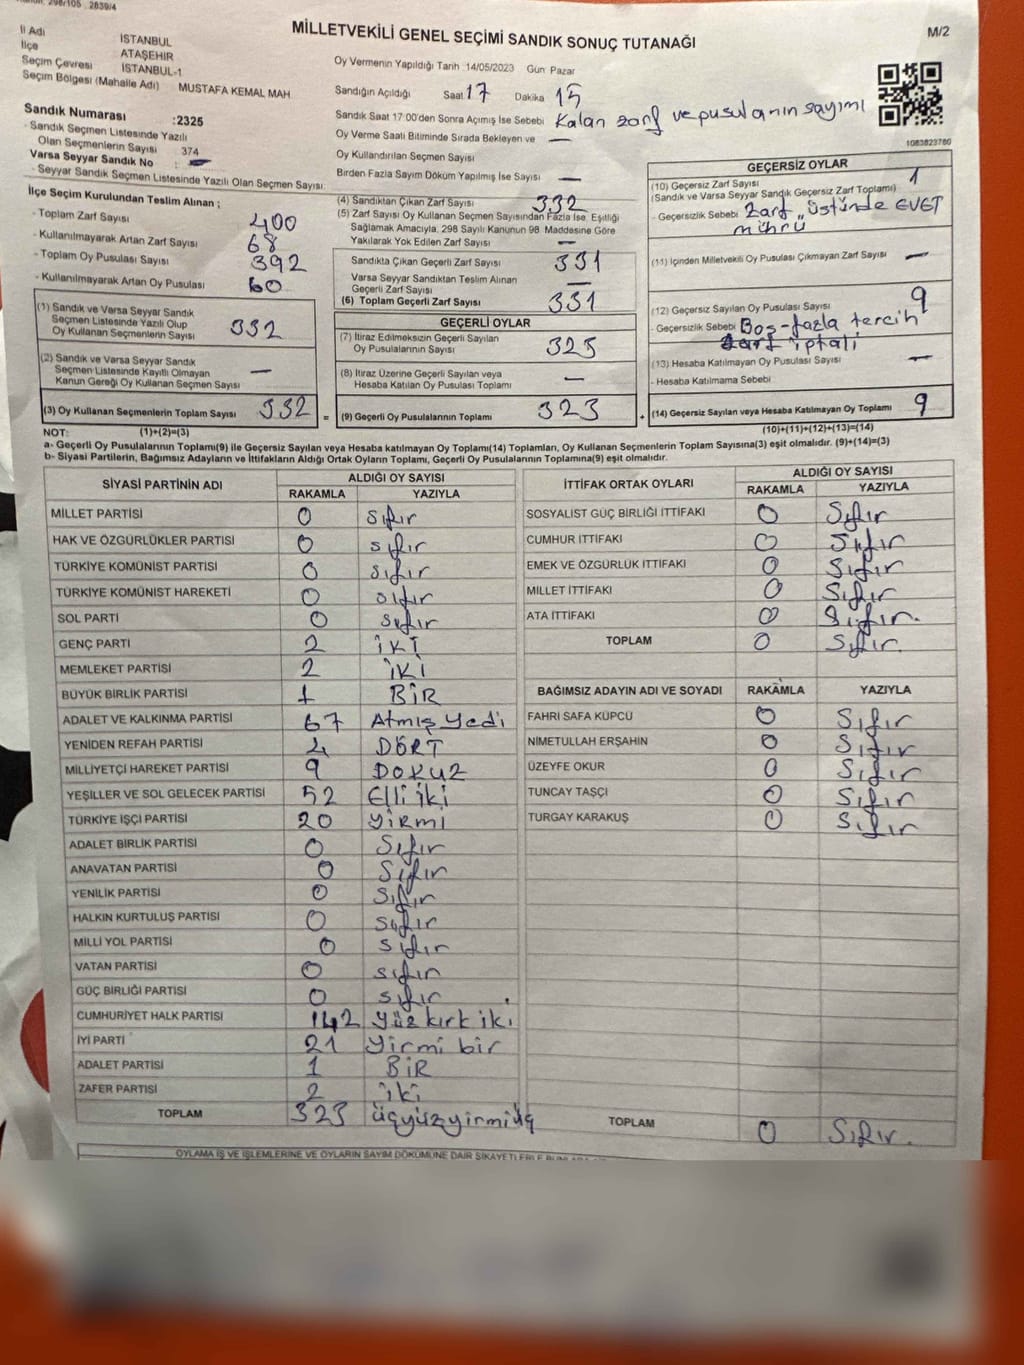 298/105 2839/4
MİLLETVEKİLİ GENEL SEÇİMİ SANDIK SONUÇ TUTANAĞI
M/2
İl Adı İSTANBUL
İlçe ATAŞEHİR
Seçim Çevresi İSTANBUL-1
Seçim Bölgesi (Mahalle Adı) MUSTAFA KEMAL MAH.
Sandık Numarası :2325
- Sandık Seçmen Listesinde Yazılı
Olan Seçmenlerin Sayısı : 374
Varsa Seyyar Sandık No :
- Seyyar Sandık Seçmen Listesinde Yazılı Olan Seçmen Sayısı:
Oy Vermenin Yapıldığı Tarih :14/05/2023 Gün Pazar
Sandığın Açıldığı Saat 17 Dakika 15
Sandık Saat 17:00'den Sonra Açılmış İse Sebebi Kalan zarf ve pusulanın sayımı
Oy Verme Saati Bitiminde Sırada Bekleyen ve —
Oy Kullandırılan Seçmen Sayısı
Birden Fazla Sayım Döküm Yapılmış İse Sayısı —
1083823760
İlçe Seçim Kurulundan Teslim Alınan ;
- Toplam Zarf Sayısı 400
- Kullanılmayarak Artan Zarf Sayısı 68
- Toplam Oy Pusulası Sayısı 392
- Kullanılmayarak Artan Oy Pusulası 60
(1) Sandık ve Varsa Seyyar Sandık
Seçmen Listesinde Yazılı Olup
Oy Kullanan Seçmenlerin Sayısı 332
(2) Sandık ve Varsa Seyyar Sandık
Seçmen Listesinde Kayıtlı Olmayan
Kanun Gereği Oy Kullanan Seçmen Sayısı —
(3) Oy Kullanan Seçmenlerin Toplam Sayısı 332 =
(4) Sandıktan Çıkan Zarf Sayısı 332
(5) Zarf Sayısı Oy Kullanan Seçmen Sayısından Fazla İse, Eşitliği
Sağlamak Amacıyla, 298 Sayılı Kanunun 98. Maddesine Göre
Yakılarak Yok Edilen Zarf Sayısı —
Sandıkta Çıkan Geçerli Zarf Sayısı 331
Varsa Seyyar Sandıktan Teslim Alınan
Geçerli Zarf Sayısı —
(6) Toplam Geçerli Zarf Sayısı 331
GEÇERLİ OYLAR
(7) İtiraz Edilmeksizin Geçerli Sayılan
Oy Pusulalarının Sayısı 323
(8) İtiraz Üzerine Geçerli Sayılan veya
Hesaba Katılan Oy Pusulası Toplamı —
(9) Geçerli Oy Pusulalarının Toplamı 323 +
GEÇERSİZ OYLAR
(10) Geçersiz Zarf Sayısı 1
(Sandık ve Varsa Seyyar Sandık Geçersiz Zarf Toplamı)
- Geçersizlik Sebebi Zarf üstünde EVET
mührü
(11) İçinden Milletvekili Oy Pusulası Çıkmayan Zarf Sayısı —
(12) Geçersiz Sayılan Oy Pusulası Sayısı 9
- Geçersizlik Sebebi Boş-fazla tercih
zarf iptali
(13) Hesaba Katılmayan Oy Pusulası Sayısı —
- Hesaba Katılmama Sebebi
(14) Geçersiz Sayılan veya Hesaba Katılmayan Oy Toplamı 9
NOT: (1)+(2)=(3) (10)+(11)+(12)+(13)=(14)
a- Geçerli Oy Pusulalarının Toplamı(9) ile Geçersiz Sayılan veya Hesaba katılmayan Oy Toplamı(14) Toplamları, Oy Kullanan Seçmenlerin Toplam Sayısına(3) eşit olmalıdır. (9)+(14)=(3)
b- Siyasi Partilerin, Bağımsız Adayların ve İttifakların Aldığı Ortak Oyların Toplamı, Geçerli Oy Pusulalarının Toplamına(9) eşit olmalıdır.
SİYASİ PARTİNİN ADI ALDIĞI OY SAYISI
RAKAMLA YAZIYLA
MİLLET PARTİSİ 0 Sıfır
HAK VE ÖZGÜRLÜKLER PARTİSİ 0 sıfır
TÜRKİYE KOMÜNİST PARTİSİ 0 sıfır
TÜRKİYE KOMÜNİST HAREKETİ 0 sıfır
SOL PARTİ 0 sıfır
GENÇ PARTİ 2 İKİ
MEMLEKET PARTİSİ 2 İKİ
BÜYÜK BİRLİK PARTİSİ 1 BİR
ADALET VE KALKINMA PARTİSİ 67 Atmış yedi
YENİDEN REFAH PARTİSİ 4 DÖRT
MİLLİYETÇİ HAREKET PARTİSİ 9 DOKUZ
YEŞİLLER VE SOL GELECEK PARTİSİ 52 Elli iki
TÜRKİYE İŞÇİ PARTİSİ 20 YİRMİ
ADALET BİRLİK PARTİSİ 0 Sıfır
ANAVATAN PARTİSİ 0 Sıfır
YENİLİK PARTİSİ 0 Sıfır
HALKIN KURTULUŞ PARTİSİ 0 Sıfır
MİLLİ YOL PARTİSİ 0 sıfır
VATAN PARTİSİ 0 sıfır
GÜÇ BİRLİĞİ PARTİSİ 0 sıfır
CUMHURİYET HALK PARTİSİ 142 Yüz kırk iki
İYİ PARTİ 21 Yirmi bir
ADALET PARTİSİ 1 BİR
ZAFER PARTİSİ 2 iki
TOPLAM 323 üçyüzyirmiüç
İTTİFAK ORTAK OYLARI ALDIĞI OY SAYISI
RAKAMLA YAZIYLA
SOSYALİST GÜÇ BİRLİĞİ İTTİFAKI 0 Sıfır
CUMHUR İTTİFAKI 0 Sıfır
EMEK VE ÖZGÜRLÜK İTTİFAKI 0 Sıfır
MİLLET İTTİFAKI 0 Sıfır
ATA İTTİFAKI 0 Sıfır.
TOPLAM 0 Sıfır.
BAĞIMSIZ ADAYIN ADI VE SOYADI RAKAMLA YAZIYLA
FAHRİ SAFA KÜPCÜ 0 Sıfır
NİMETULLAH ERŞAHİN 0 Sıfır
ÜZEYFE OKUR 0 Sıfır
TUNCAY TAŞÇI 0 Sıfır
TURGAY KARAKUŞ 0 Sıfır
TOPLAM 0 Sıfır.
OYLAMA İŞ VE İŞLEMLERİNE VE OYLARIN SAYIM DÖKÜMÜNE DAİR ŞİKAYETLER